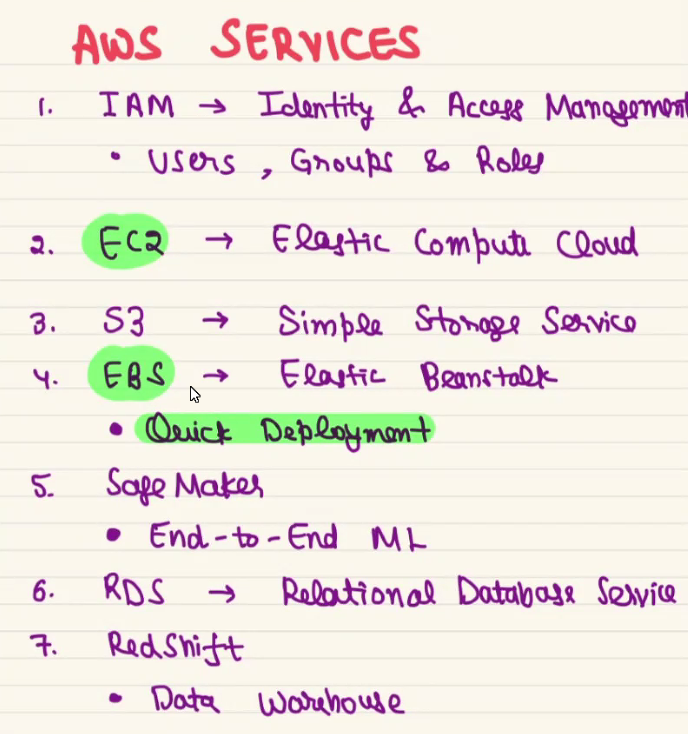 AWS SERVICES
1. IAM → Identity & Access Management
• Users, Groups & Roles
2. EC2 → Elastic Compute Cloud
3. S3 → Simple Storage Service
4. EBS → Elastic Beanstalk
• Quick Deployment
5. SageMaker
• End-to-End ML
6. RDS → Relational Database Service
7. RedShift
• Data Warehouse